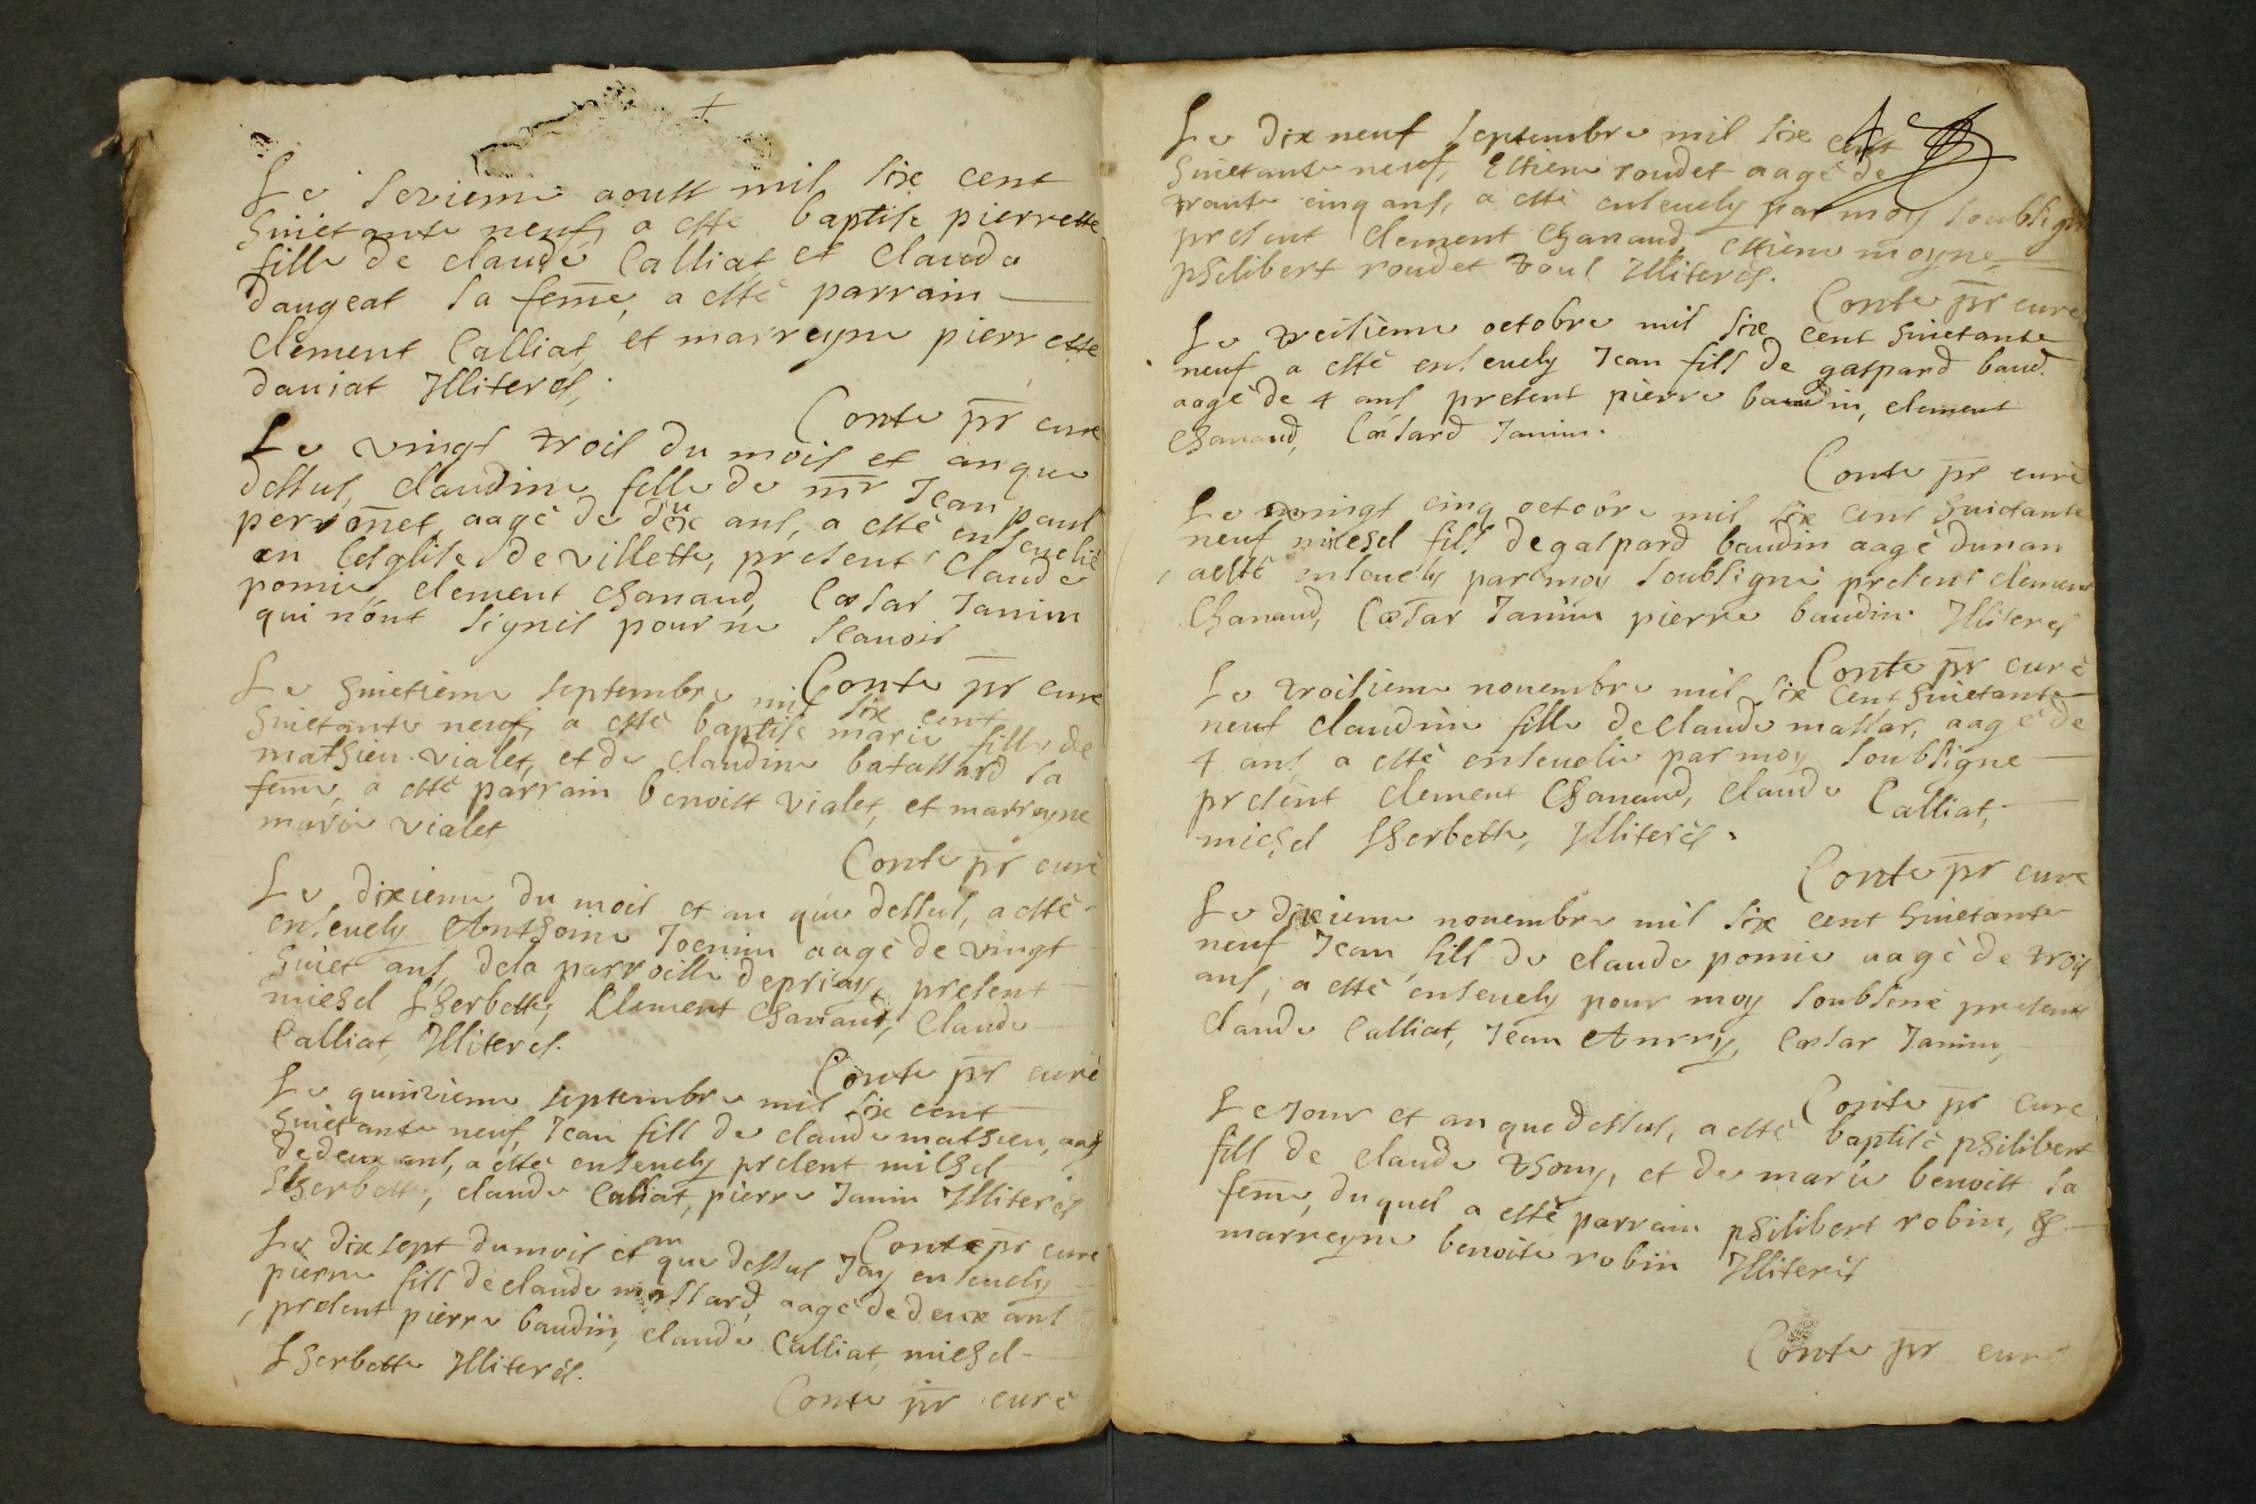 Le sezieme aoust mil six cent
huictante neuf, a esté baptisé pierrette
fille de claude Calliat et Clauda
daugeat sa feme, a esté parrain
Clement Calliat, et marreyne pierrette
daniat Illiterés,
Conte pr curé
Le vingt trois du mois et an que
dessus, claudine fille de mr Jean paul
perronet, aagé de dix ans, a esté ensevelie
en leglise de villette, present Claude
pomie clement chanaud, Cæsar Janin
qui n'ont signés pour ne scavoir
Conte pr curé
Le huictieme septembre mil six cent
huictante neuf, a esté baptisé marie fille de
mathieu vialet, et de claudine batassard sa
feme, a esté parrain benoist vialet, et marreyne
marie vialet
Conte pr curé
Le dixieme du mois et an que dessus, a esté
ensevely Anthoine Joenin aagé de vingt
huict ans, de la parroisse de priay, present
michel Lherbette, Clement Chanaud, Claude
Calliat, Illiterés.
Conte pr curé
Le quinzieme septembre mil six cent
huictante neuf, Jean fils de claude mathieu, aagé
de deux ans, a esté ensevely present michel
Lherbette, claude Calliat, pierre Janin Illiterés
Conte pr curé
Le dix sept du mois et an que dessus Jay ensevely
pierre fils de claude massard, aagé de deux ans
present pierre baudin, claude Calliat, michel
Lherbette Illiterés.
Conte pr curé
Le dix neuf septembre mil six cent
huictante neuf, Estiene roudet aagé de
trante cinq ans, a esté ensevely par moy soubsigné
present clement Chanaud, estiene moyne,
philibert roudet tous Illiterés.
Conte pr curé
Le treisieme octobre mil six cent huictante
neuf a esté ensevely Jean fils de gaspard baud.
aagé de 4 ans present pierre baudin, clement
Chanaud, Cæsard Janin.
Conte pr curé
Le vingt cinq octobre mil six cent huictante
neuf michel fils de gaspard baudin aagé dun an
a esté ensevely par moy soubsigné present clement
Chanaud, Cæsar Janin pierre baudin Illiterés
Conte pr curé
Le troisieme novembre mil six cent huictante
neuf claudine fille de claude massar, aagé de
4 ans a esté ensevelie par moy soubsigné
present clement Chanaud, claude Calliat,
michel Lherbette, Illiterés.
Conte pr curé
Le dixieme novembre mil six cent huictante
neuf Jean fils de claude pomie aagé de trois
ans, a esté ensevely pour moy soubsiné present
claude Calliat, Jean Anrry, Cæsar Janin,
Conte pr curé
Le Jour et an que dessus, a esté baptisé philibert
fils de claude thony, et de marie benoist sa
feme, du quel a esté parrain philibert robin, &
marreyne benoite robin Illiterés
Conte pr curé